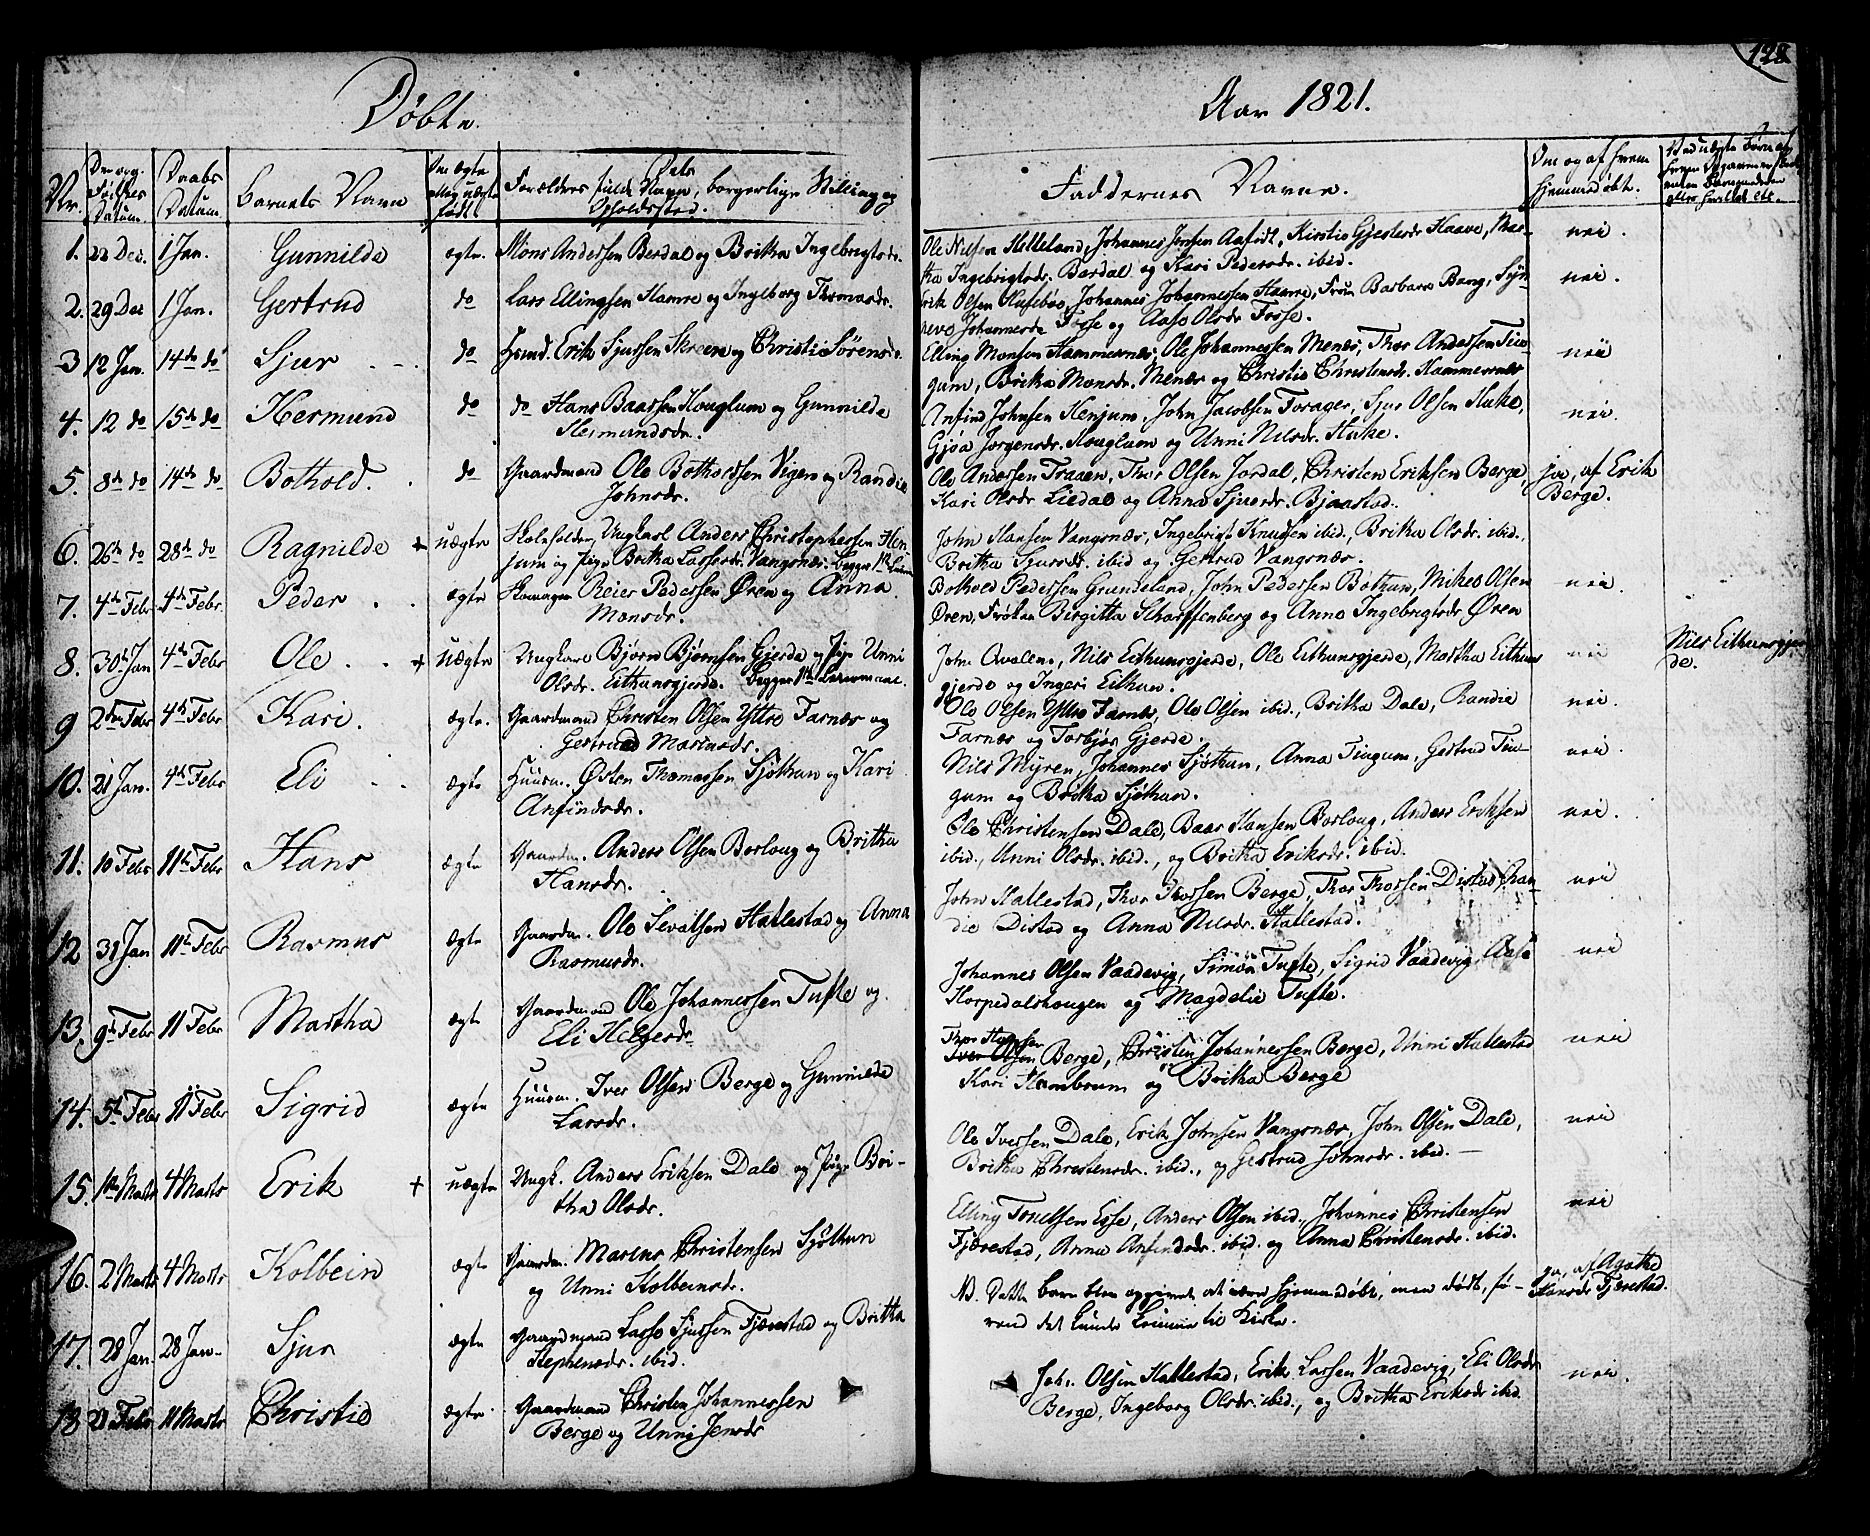 128
Døbte.
Aar 1821.
Nr.
Datum.
Daabs
Datum.
Barnets Navn
Om ægte
eller uægte
født.
Forældres fulde Navn, borgerlige Stilling og
Opholdssted.
Faddernes Navne.
Om og af hvem
hjemmedøbt.
1. 22 Dec. 1 Jan. Gunnilde ægte. Mons Andersen Berdal og Britha Ingebrigtsdr.
Ole Nilsen Helleland, Johannes Jensen Aafødt, Kirstie Gjestsdr Haave, Mar- nei.
tha Ingebrigtsdr. Bardal og Kari Pedersdr. ibid.
2. 29 Dec 1 Jan. Gertrud do Lars Ellingsen Hamre og Ingeborg Thomasdr.
Erik Olsen Husebøe, Johannes Johannessen Hamre, Frue Barbara Bang, Syn- nei.
neve Johannesdr Fosse og Aase Olsdr Fosse.
3 12 Jan. 14de do Sjur do Huusmd. Erik Sjursen Skreen og Christi Sørensdr.
Elling Monsen Hammernæs, Ole Johannessen Menæs, Thor Andersen Tiu- nei
gum, Britha Monsdr. Menæs og Christie Christensdr. Hammernæs
4. 12 do 15de do Hermund do do Hans Baarsen Houglum og Gunnilde
Hermundsdr.
Anfind Johnsen Henjum, John Jacobsen Forager, Sjur Olsen Huke, nei.
Gjøa Jørgensdr. Houglum og Unni Nilsdr. Huke.
5. 8de do 14de do Bothold. do Gaardmand Ole Botholdsen Vigen og Randie
Johnsdr.
Ole Andersen Traaen, Thor Olsen Jordal, Christen Eriksen Berge, ja, af Erik
Kari Olsdr Liedal og Anna Sjursdr. Bjaastad. Berge.
6. 26de do 28de do Ragnilde + uægte Ungkarl Anders Christophersen Hen-
jum og Pige Britha Larsdr. Vangsnæs. begges 1ste Leierm
John Hansen Vangsnæs, Ingebrigt Knudsen ibid., Britha Olsdr. ibid.,
Britha Sjursdr. ibid og Gertrud Vangsnæs.
7. 4de Febr 4de Febr. Peder ægte Skomager Reier Pedersen Øren og Anna
Monsdr.
Bothold Pedersen Grundeland, John Pedersen Bothun, Mikel Olsen nei.
Øren, Frøken Birgitta Scharffenberg og Anna Ingebrigtsdr Øren
8. 30de Jan 4de Febr Ole + uægte Ungkarl Bjørn Bjørnsen Gjerde og Pige Unni
Olsdr. Eithunsgjerde. begges 1ste Leiermaal.
John Qvalem, Nils Eithunsgjerde, Ole Eithunsgjerde, Martha Eithuns nei Nils Eithunsgjer-
gjerde og Ingeri Eithun. de.
9 2den Febr 4de Febr Kari. ægte. Gaardmand Christen Olsen Yttre Farnæs og
Gertrud Mariusdr.
Ole Olsen Yttre Farnæs, Ole Olsen ibid., Britha Dale, Randie nei.
Farnæs og Torbjør Gjerde.
10. 21 Jan. 4de Febr Eli ægte Huusm. Østen Thomassen Sjøthun og Kari
Anfindsdr.
Nils Myren, Johannes Sjøthun, Anna Tiugum, Gertrud Tiu- nei.
gum og Britha Sjøthun.
11. 10 Febr 11te Febr Hans ægte Gaardm. Anders Olsen Borloug og Britha
Hansdr.
Ole Christensen Dale, Baar Hansen Borloug, Anders Eriksen nei.
ibid., Unni Olsdr. ibid., og Britha Eriksdr. ibid.
12 31 Jan 11te Febr Rasmus ægte Gaardm. Ole Sevatsen Hallestad og Anna
Rasmusdr.
John Hallestad, Thor Thorsen Berge, Thor Thorsen Distad, Ran- nei
die Distad og Anna Nilsdr. Hallestad.
13. 9de Febr 11 Febr Martha ægte Gaardmand Ole Johannessen Tufte og
Eli Helgesdr
Johannes Olsen Vaadevig, Simon Tufte, Sigrid Vaadevig, Aase nei
Horpedalshougen og Magdelie Tufte.
14. 5te Febr 11 Febr Sigrid ægte Huusm. Iver Olsen Berge og Gunnilde
Larsdr.
Thor Hansen
Iver Olsen Berge, Christen Johannessen Berge, Unni Hallestad nei
Kari Hambrum og Britha Berge
15. 1ste Marts 4 Marts Erik + uægte Ungk. Anders Eriksen Dale og Pige Bri-
tha Olsdr.
Ole Iversen Dale, Erik Johnsen Vangsnæs, John Olsen Dale, nei
Britha Christensdr. ibid., og Gertrud Johnsdr. ibid.
16. 2 Marts 4 Marts Kolbein ægte Gaardm. Marius Christensen Sjøthun
og Unni Kolbeinsdr.
Elling Tonelsen Esse, Anders Olsen ibid., Johannes Christensen nei
Fjærestad, Anna Anfindsdr. ibid. og Anna Christensdr. ibid.
17. 28 Jan. 28 Jan. Sjur ægte Gaardmand Lasse Sjursen Fjærestad og Britha
Stephensdr. ibid.
NB. Dette barn blev opgivet at være hjemmedøbt, men dødt, fø- ja, af Agathe
rend det kunde komme til Kirke. Hansdr Fjærestad.
18 21 Febr 11 Marts Christie ægte. Gaardmand Christen Johannessen
Berge og Unni Jensdr
Joh. Olsen Hallestad, Erik Larsen Vaadevig, Eli Olsdr nei.
Berge, Ingeborg Olsdr. ibid., og Britha Eriksdr ibid.